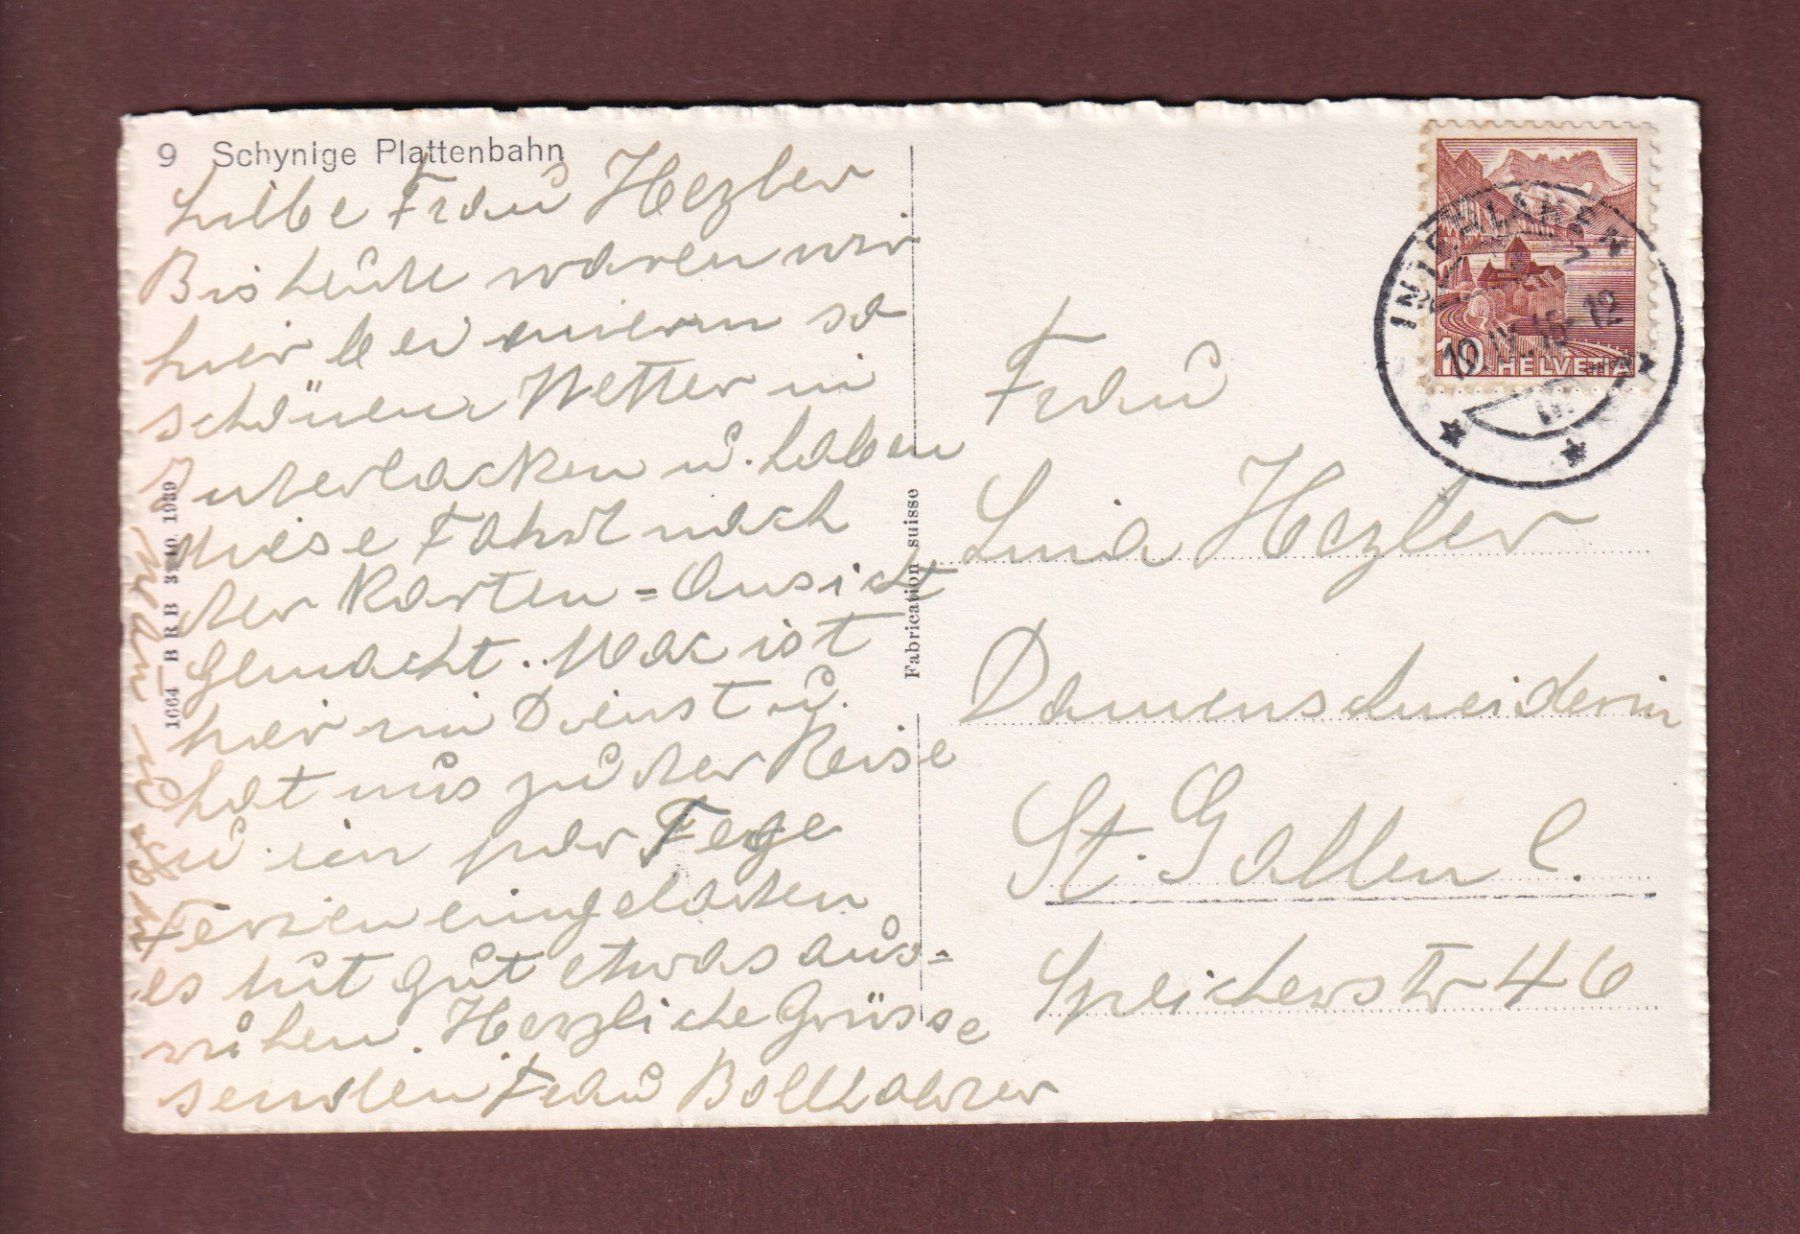 9 Schynige Plattenbahn
Liebe Frau Hezler
Bis heute waren wir
hier bei so
schönem Wetter in
Interlacken u. haben
diese Fahrt nach
der Karten = Ansicht
gemacht. Max ist
hier im Dienst u.
hat uns zu der Reise
u. ein par Tage
Ferien eingeladen
es tut gut etwas aus-
ruhen. Herzliche Grüsse
senden Frau
1664 BRB 3.10.1939
Fabrication suisse
HELVETIA
10
INTERLAKEN
Frau
Lina Hezler
Damenschneiderin
St. Gallen C.
Speicherstr 46